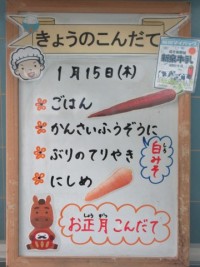 きょうのこんだて
1月15日(木)
ごはん
かんさいふうぞうに
白みそ
ぶりのてりやき
にしめ
お正月こんだて